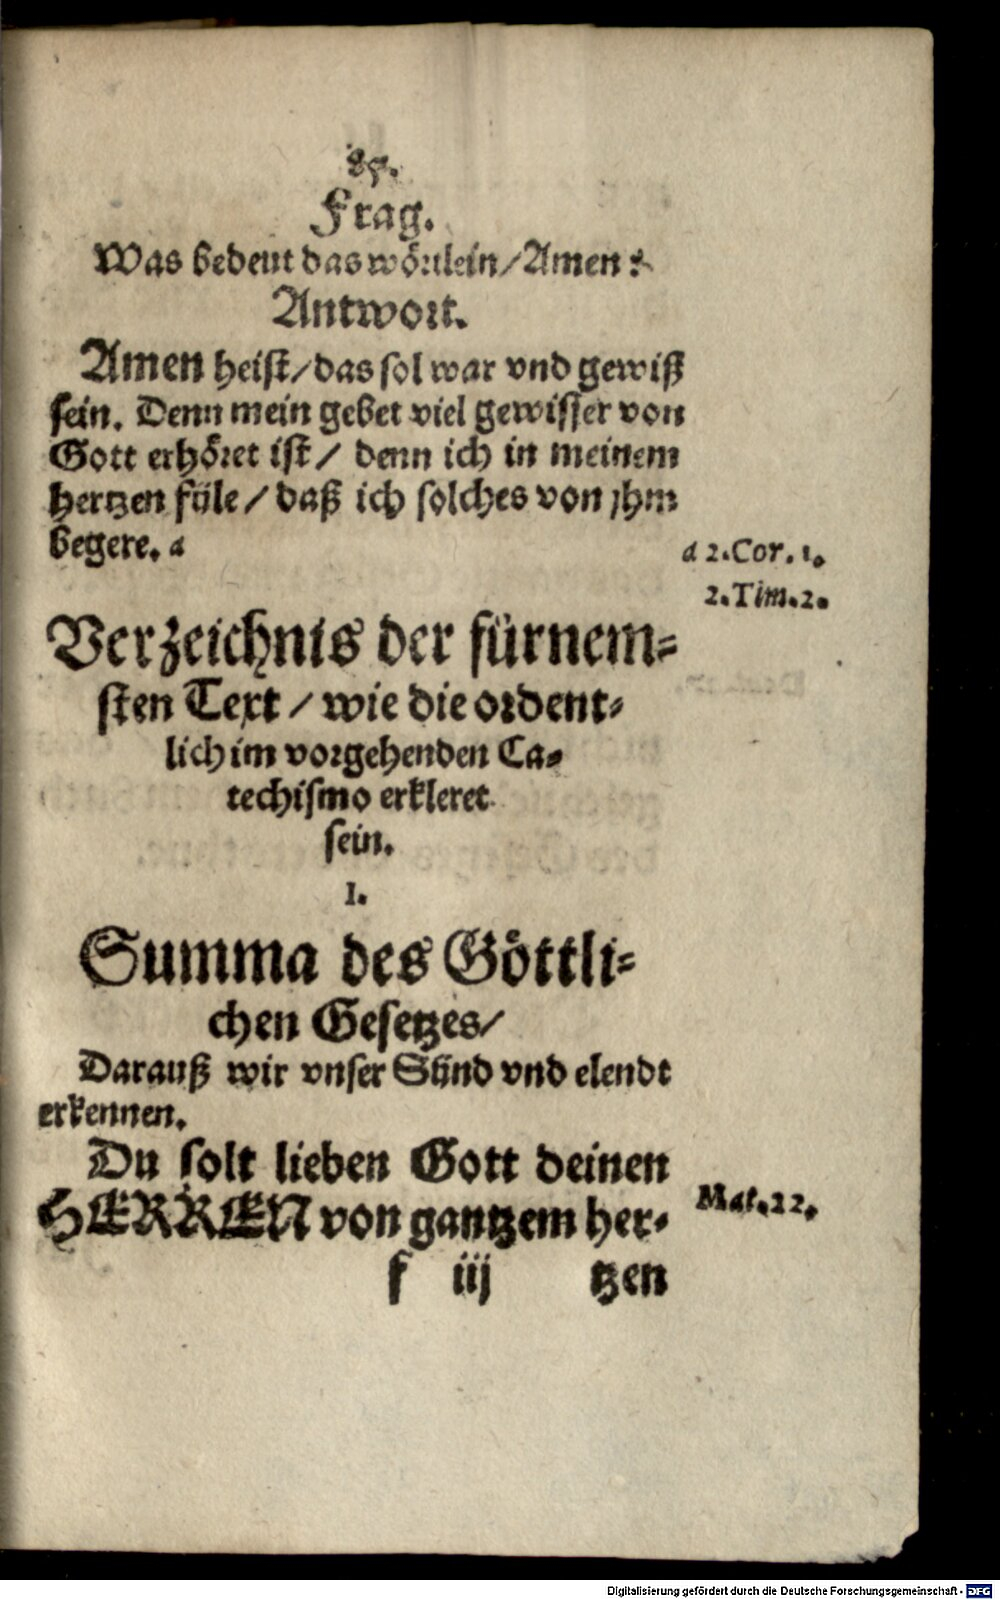 85.
Frag.
Was bedeut das wörtlein/Amen?
Antwort.
Amen heist/das sol war vnd gewiß
sein. Denn mein gebet viel gewisser von
Gott erhöret ist/ denn ich in meinem
hertzen füle/ daß ich solches von jhm
begere. a
a 2.Cor.1.
2.Tim.2.
Verzeichnis der fürnem-
sten Text/ wie die ordent-
lich im vorgehenden Ca-
techismo erkleret
sein.
I.
Summa des Göttli-
chen Gesetzes/
Darauß wir vnser Sünd vnd elendt
erkennen.
Du solt lieben Gott deinen
HERREN von gantzem her-
Mat.22.
f iij tzen
Digitalisierung gefördert durch die Deutsche Forschungsgemeinschaft - DFG